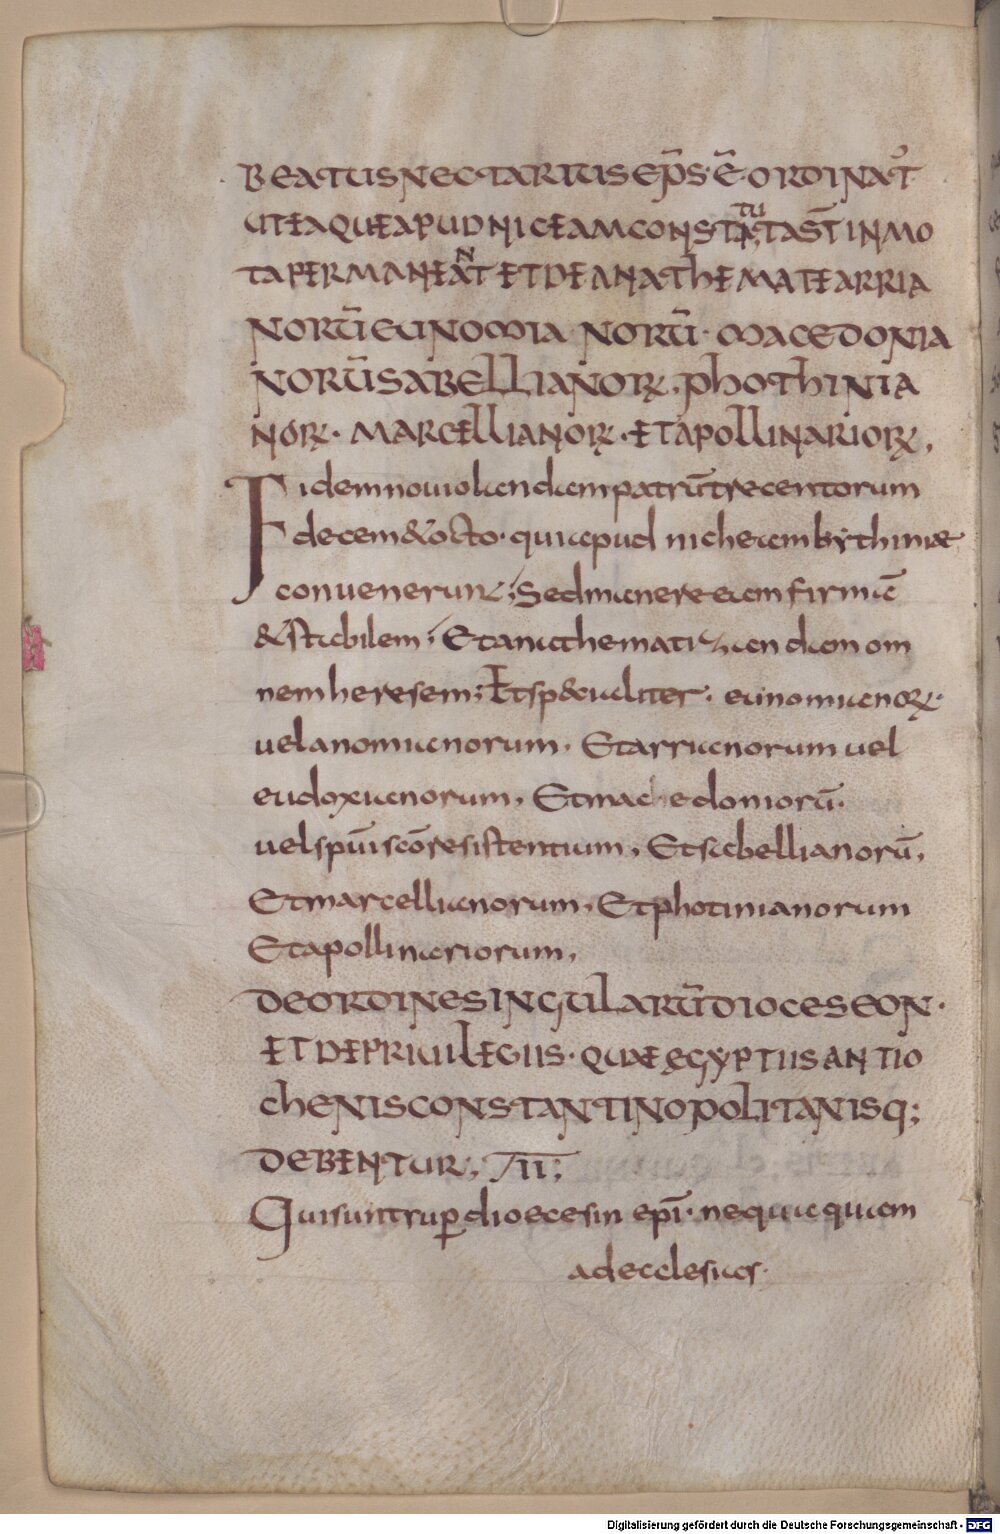 BEATUS NECTARIUS EP̄S Ē ORDINAT᷒
UTEA QUE APUD NICEAM CONSTITUTA S̄T INMO
TA PERMANEANT ET DE ANATHEMATE ARRIA
NORŪ EUNOMIANORŪ· MACEDONIA
NORŪ SABELLIANORꝜ, PHOTHINIA
NORꝜ· MARCELLIANORꝜ· ET APOLLINARIORꝜ,
Fidem non uiolandam patrū trecentorum
decem & octo· qui apud nicheam bythiniae
conuenerunt; Sed manere eam firmā
& stabilem; Et anathematizandam om
nem heresem; Et sp&ialiter· eunomianoꝝ·
uel anomianorum, Et arrianorum uel
eudoxianorum, Et machedoniorū·
uel spūi scō resistentium, Et sabellianorū,
Et marcellianorum, Et photinianorum
Et apollinariorum,
DE ORDINE SINGULARŪ DIOCESEON·
ET DE PRIUILEGIIS· QUAE ĘGYPTIIS ANTIO
CHENIS CONSTANTINOPOLITANISQ;
DEBENTUR, II;
Qui sunt super dioecesin epī· nequaquam
ad ecclesias·
Digitalisierung gefördert durch die Deutsche Forschungsgemeinschaft - DFG